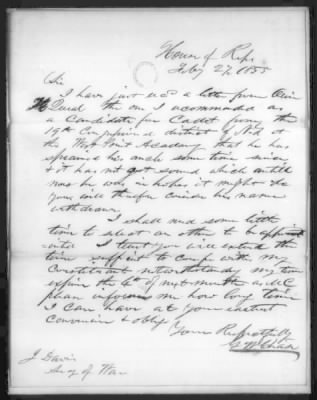 House of Reps
Feby 27, 1855
Sir
I have just recd a letter from Orin
the one I recommended as
a Candidate for Cadet from the
19th Congressional district of N.Y. at the
West Point Academy that he has
sprained his ancle some time since
& it has not got sound which until
now he was in hopes it might be
you will therefore consider his name
withdrawn
I shall need some little
time to select an other to be appoint
I trust you will extend the
time sufficient to confer with my
Constituent notwithstanding my time
expires the 4th of next month as M.C.
please inform me how long time
I can have at your earliest
convenience & oblige
Yours Respectfully
J Davis
Secy of War